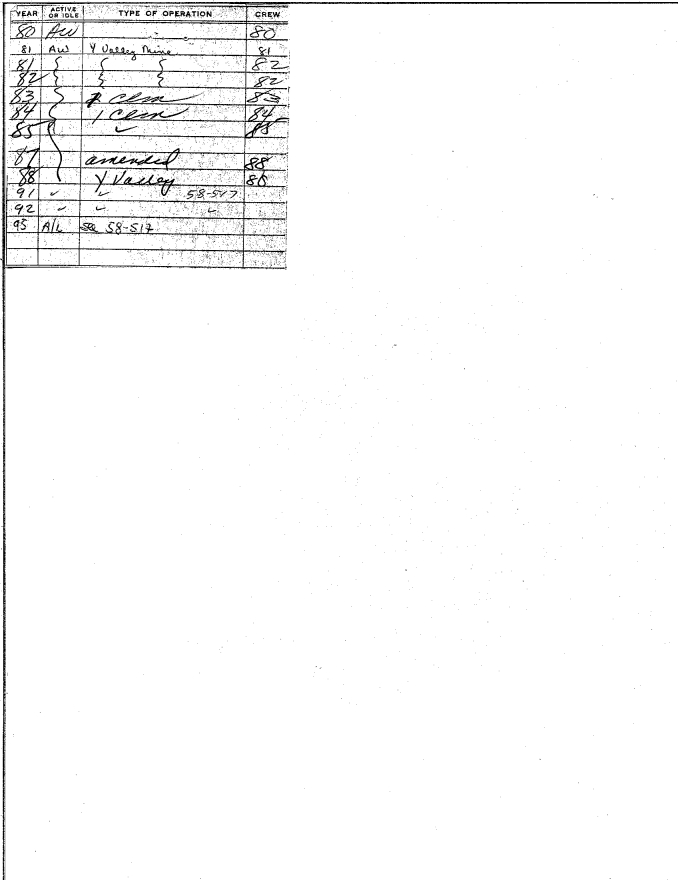 YEAR ACTIVE OR IDLE TYPE OF OPERATION CREW
80 AW 80
81 AW Y Valley Mine 81
81 { { { 82
82 { { 82
83 Clm 83
84 1 Clm 84
85 ✓
87 amended 88
88 Y Valley 88
91 ✓ ✓ 58-517
92 ✓ ✓ ✓
95 A/L see 58-517